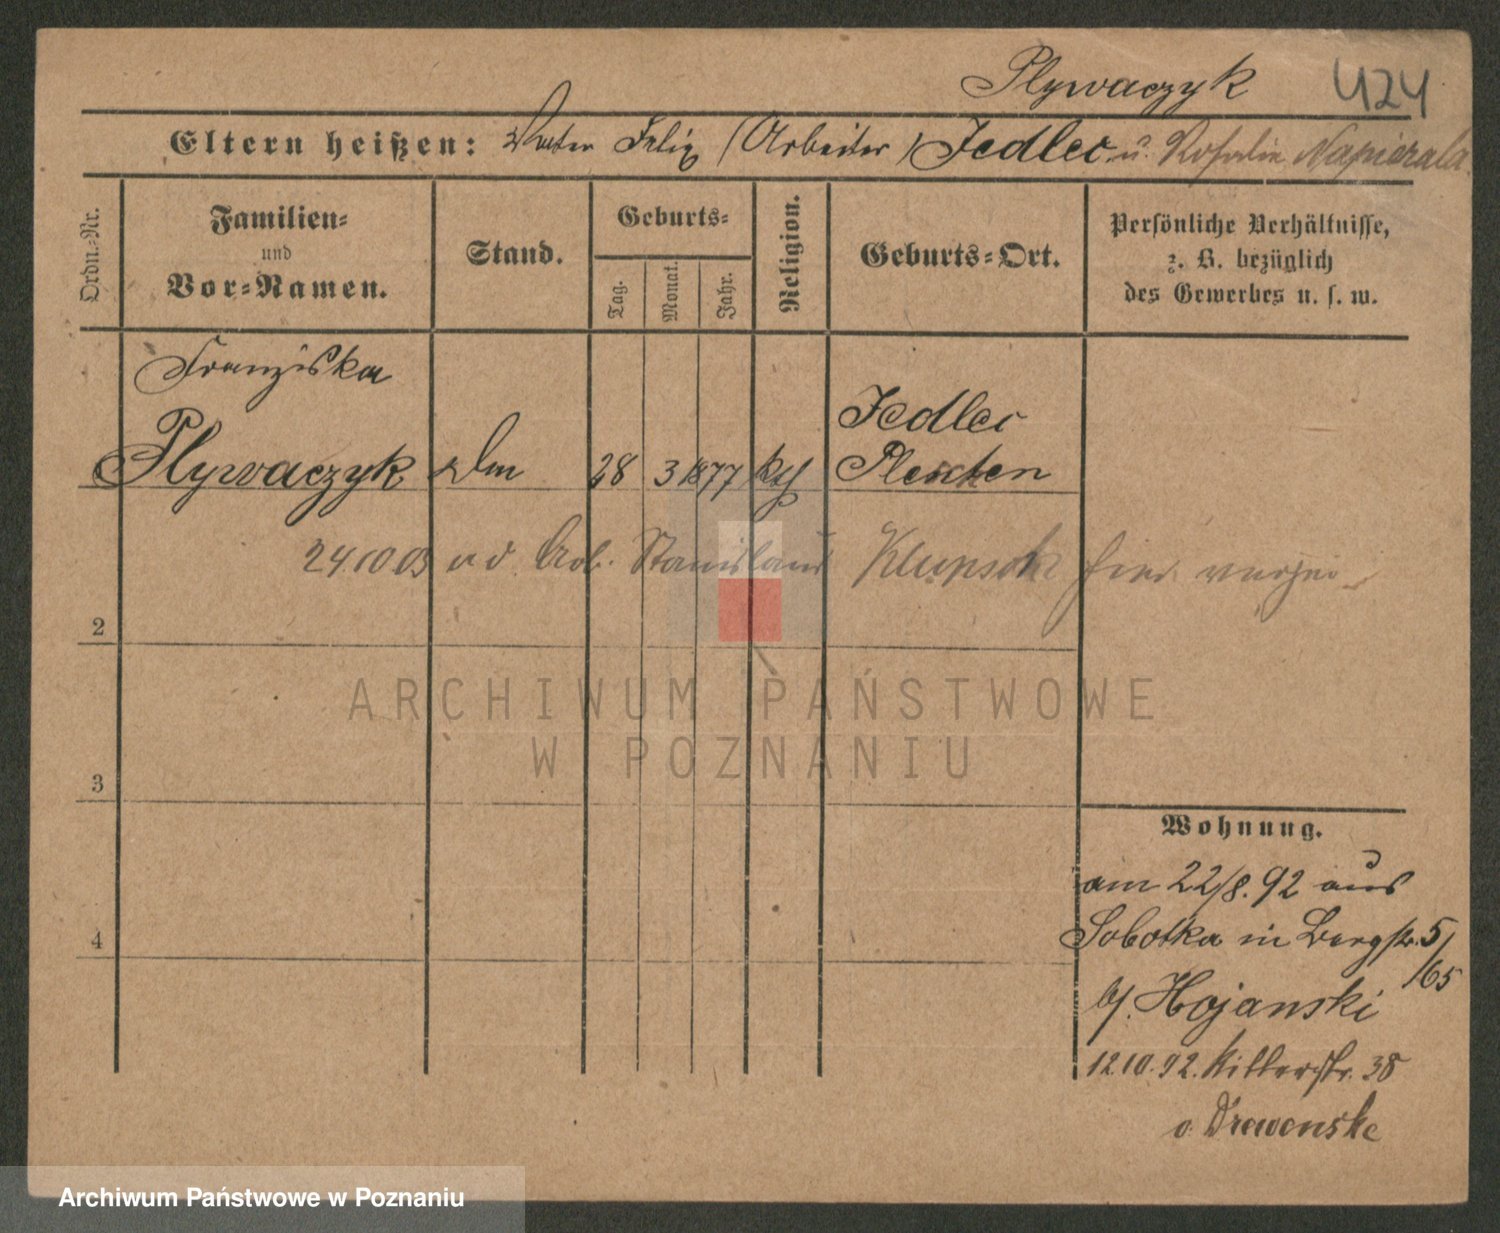 Plywaczyk 424
Eltern heißen: Vater Felix (Arbeiter) Jedlec u. Rosalie Napierala
Ordn.=Nr.
Familien=
und
Vor=Namen.
Stand.
Geburts=
Tag.
Monat.
Jahr.
Religion.
Geburts=Ort.
Persönliche Verhältnisse,
z. B. bezüglich
des Gewerbes u. s. w.
Franziska
Plywaczyk 28 3 1877 kth
Jedlec
Pleschen
24.10.03 a. d. Arb. Stanislaus Klupsch hier
2
3
4
ARCHIWUM PAŃSTWOWE
W POZNANIU
Wohnung.
am 22/8. 92 aus
Sobotka in Bergstr. 5/65
b/. Hojanski
12.10.92. Ritterstr. 38
Archiwum Państwowe w Poznaniu